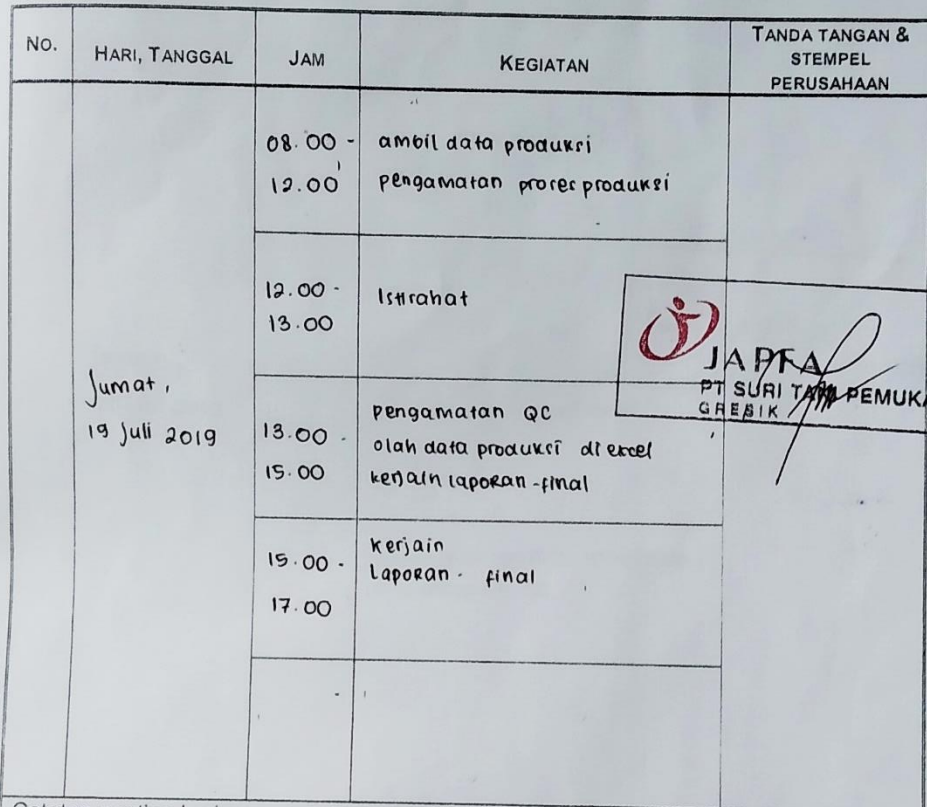 NO.
HARI, TANGGAL
JAM
KEGIATAN
TANDA TANGAN &
STEMPEL
PERUSAHAAN
Jumat,
19 Juli 2019
08.00 -
12.00
ambil data produksi
pengamatan proses produksi
12.00 -
13.00
Istirahat
JAPFA
PT SURI TANI PEMUKA
GRESIK
13.00 -
15.00
pengamatan QC
olah data produksi di excel
kerjain laporan -final
15.00 -
17.00
kerjain
Laporan - final